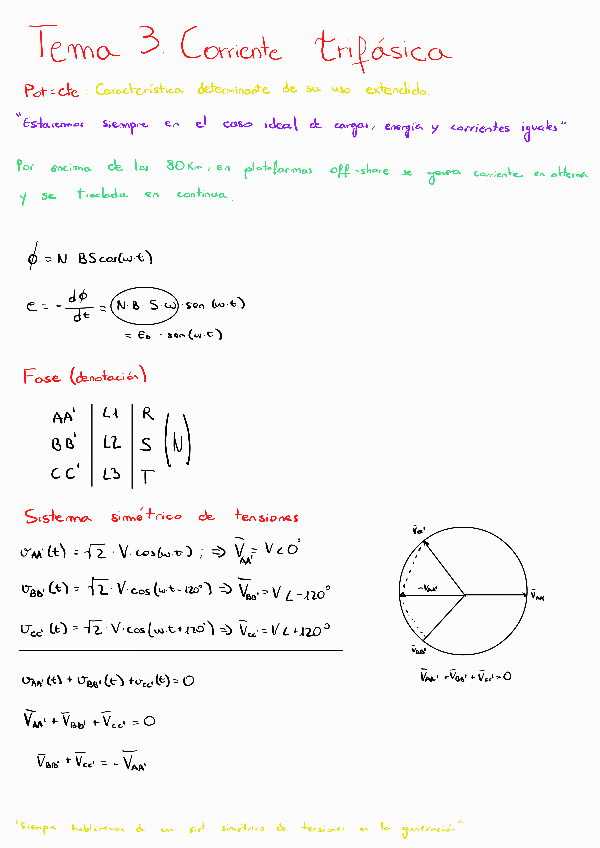 Tema 3. Corriente trifásica
Pot = cte : Característica determinante de su uso extendido.
"Estaremos siempre en el caso ideal de cargas, energía y corrientes iguales"
Por encima de los 80Km, en plataformas off-shore se genera corriente en alterna
y se traslada en continua.
ϕ = N B S cos(w·t)
e = - dϕ/dt = (N·B·S·w)·sen(w·t)
= E₀ · sen(w·t)
Fase (denotación)
AA' | L1 | R
BB' | L2 | S (N)
CC' | L3 | T
Sistema simétrico de tensiones
υAA'(t) = √2 · V · cos(w·t) ; ⇒ V̄AA' = V∠0°
υBB'(t) = √2 · V · cos(w·t-120°) ⇒ V̄BB' = V∠-120°
υCC'(t) = √2 · V · cos(w·t+120°) ⇒ V̄CC' = V∠+120°
υAA'(t) + υBB'(t) + υCC'(t) = 0
V̄AA' + V̄BB' + V̄CC' = 0
V̄BB' + V̄CC' = - V̄AA'
V̄CC'
-V̄AA'
V̄AA'
V̄BB'
V̄AA' + V̄BB' + V̄CC' = 0
"Siempre hablaremos de un sist simétrico de tensiones en la generación"